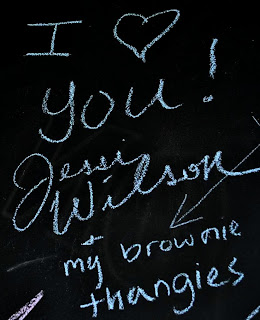 I ♡
you!
Jessi
Wilson
+
my brownie
thangies